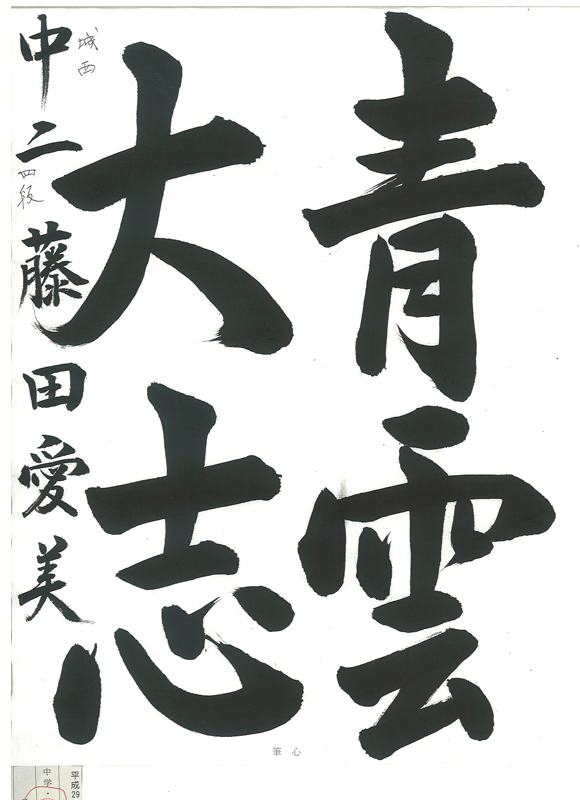 青雲
大志
城西
中二 藤田愛美
四段
筆心
平成29
中学・